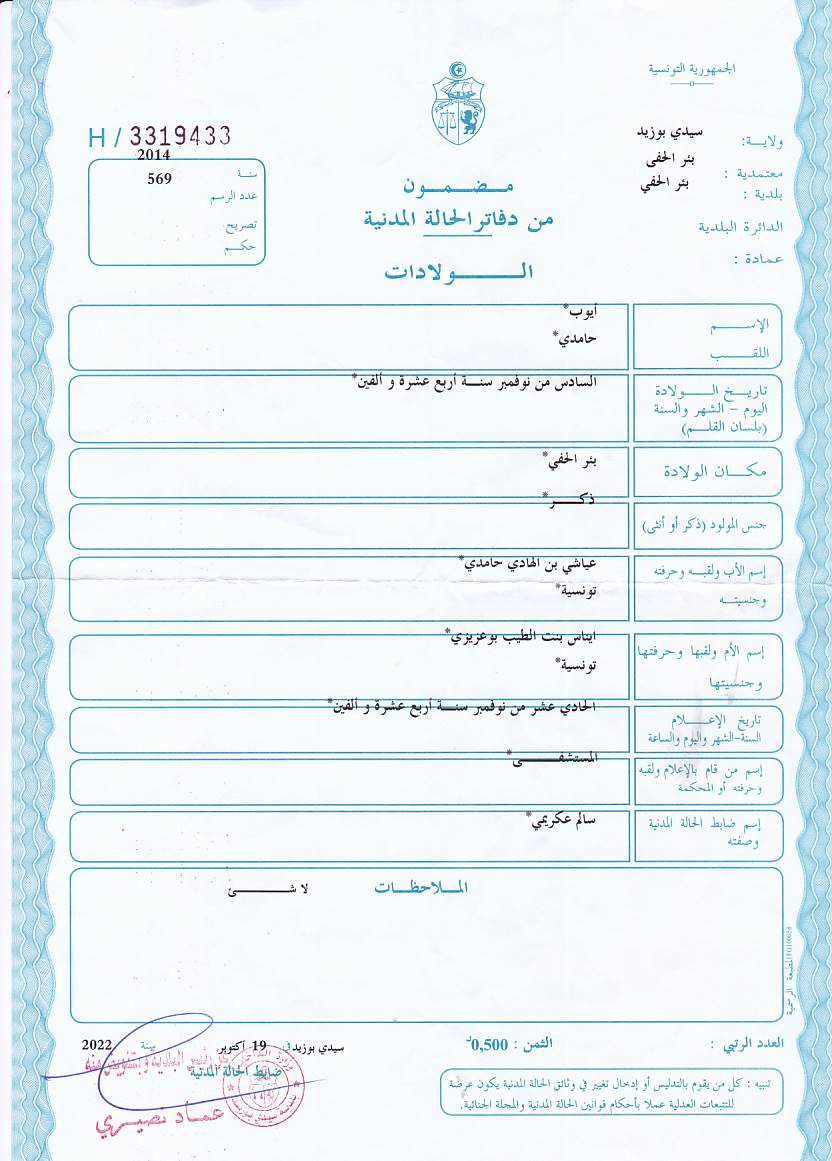 الجمهورية التونسية
ولايــة: سيدي بوزيد
معتمدية : بئر الحفى
بلدية : بئر الحفي
الدائرة البلدية
عمادة :
H / 3319433
سنة 2014
عدد الرسم 569
تصريح
حكـم
مـضـمـون
من دفاتر الحالة المدنية
الـــولادات
الإســـم أيوب*
اللقـــب حامدي*
تاريـخ الـــولادة السادس من نوفمبر سنـة أربع عشرة و ألفين*
اليوم – الشهر والسنة
(بلسان القلـم)
مكـان الولادة بئر الحفي*
جنس المولود (ذكر أو أنثى) ذكـــر*
إسم الأب ولقبـه وحرفته عياشي بن الهادي حامدي*
وجنسيتـه تونسية*
إسم الأم ولقبها وحرفتها ايناس بنت الطيب بوعزيزي*
وجنسيتها تونسية*
تاريخ الإعـــلام الحادي عشر من نوفمبر سنـة أربع عشرة و ألفين*
السنة-الشهر واليوم والساعة
إسم من قام بالإعلام ولقبه المستشفـــى*
وحرفته أو المحكمة
إسم ضابط الحالة المدنية سالم عكريمي*
وصفته
المـلاحظـات
لا شـــئ
العدد الرتبي :
الثمن : 0,500د
سيدي بوزيد في 19 أكتوبر سنة 2022
ضابط الحالة المدنية
عمـاد نصيـري
تنبيه : كل من يقوم بالتدليس أو إدخال تغيير في وثائق الحالة المدنية يكون عرضة
للتتبعات العدلية عملا بأحكام قوانين الحالة المدنية والمجلة الجنائية.
المطبعة الرسمية